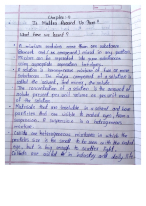 Chapter - 2
Is Matter Around Us Pure?
What have we learnt?
• A mixture contains more than one substance
(element and/or compound) mixed in any proportion.
• Mixtures can be separated into pure substances
using appropriate separation techniques.
• A solution is a homogeneous mixture of two or more
substances. The major component of a solution is
called the solvent, and the minor, the solute.
• The concentration of a solution is the amount of
solute present per unit volume or per unit mass
of the solution
• Materials that are insoluble in a solvent and have
particles that are visible to naked eyes, form a
suspension. A suspension is a heterogeneous
mixture.
• Colloids are heterogeneous mixtures in which the
particle size is too small to be seen with the naked
eye, but is big enough to scatter light.
Colloids are useful in industry and daily life